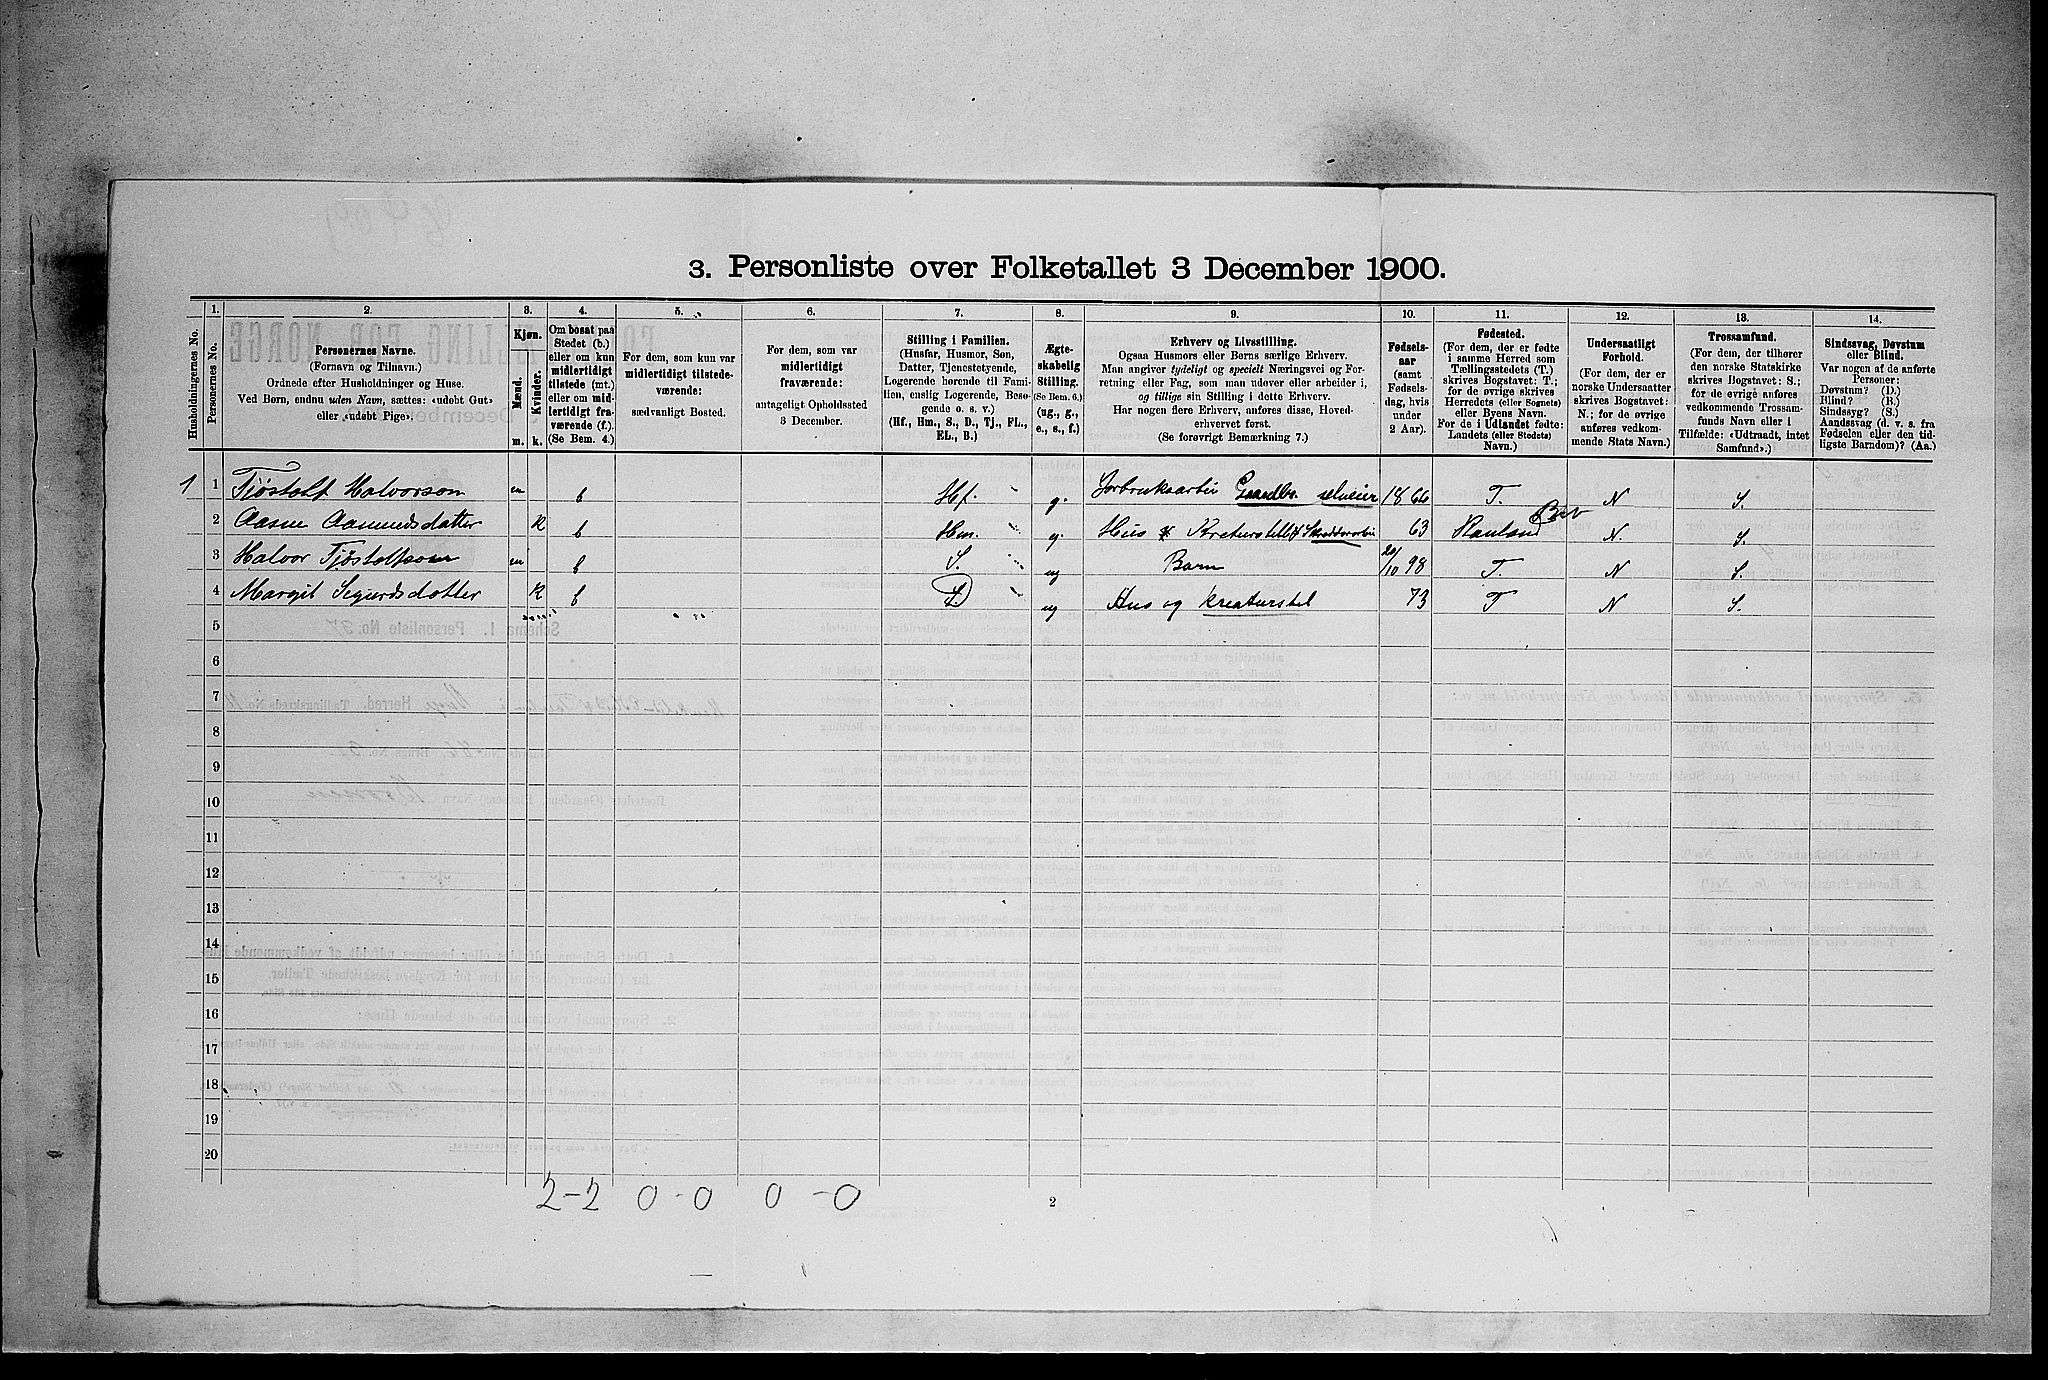 3. Personliste over Folketallet 3 December 1900.
Husholdningernes No.
1.
Personernes No.
2.
Personernes Navne.
(Fornavn og Tilnavn.)
Ordnede efter Husholdninger og Huse.
Ved Børn, endnu uden Navn, sættes: «udøbt Gut»
eller «udøbt Pige».
3.
Kjøn.
Mænd.
Kvinder.
m.
k.
4.
Om bosat paa
Stedet (b.)
eller om kun
midlertidigt
tilstede (mt.)
eller om mid-
lertidigt fra-
værende (f.).
(Se Bem. 4.)
5.
For dem, som kun var
midlertidigt tilstede-
værende:
sædvanligt Bosted.
6.
For dem, som var
midlertidigt
fraværende:
antageligt Opholdssted
3 December.
7.
Stilling i Familien.
(Husfar, Husmor, Søn,
Datter, Tjenestetyende,
Logerende hørende til Fami-
lien, enslig Logerende, Besø-
gende o. s. v.)
(Hf., Hm., S., D., Tj., FL.,
EL., B.)
8.
Ægte-
skabelig
Stilling.
(Se Bem. 6.)
(ug., g.,
e., s., f.)
9.
Erhverv og Livsstilling.
Ogsaa Husmors eller Børns særlige Erhverv.
Man angiver tydeligt og specielt Næringsvei og For-
retning eller Fag, som man udøver eller arbeider i,
og tillige sin Stilling i dette Erhverv.
Har nogen flere Erhverv, anføres disse, Hoved-
erhvervet først.
(Se forøvrigt Bemærkning 7.)
10.
Fødsels-
aar
(samt
Fødsels-
dag, hvis
under
2 Aar).
11.
Fødested.
(For dem, der er fødte
i samme Herred som
Tællingsstedets (T.)
skrives Bogstavet: T.;
for de øvrige skrives
Herredets (eller Sognets)
eller Byens Navn.
For de i Udlandet fødte:
Landets (eller Stedets)
Navn.)
12.
Undersaatligt
Forhold.
(For dem, der er
norske Undersaatter
skrives Bogstavet:
N.; for de øvrige
anføres vedkom-
mende Stats Navn.)
13.
Trossamfund.
(For dem, der tilhører
den norske Statskirke
skrives Bogstavet: S.;
for de øvrige anføres
vedkommende Trossam-
funds Navn eller i
Tilfælde: «Udtraadt, intet
Samfund».)
14.
Sindssvag, Døvstum
eller Blind.
Var nogen af de anførte
Personer:
Døvstum? (D.)
Blind? (B.)
Sindssyg? (S.)
Aandssvag (d. v. s. fra
Fødselen eller den tid-
ligste Barndom)? (Aa.)
1 1 Tjøstolf Halvorson m b Hf. g. Jorbruksarbei Gaardbr. selveier 1866 T. N S.
2 Aasne Aamundsdatter K b Hm. g. Hus Kreturstell Skrædderarbei 63 Rauland N. S.
3 Halvor Tjøstolfson m b S. ug Barn 20/10 98 T. N S.
4 Margit Sigurdsdatter K b ug Hus og kreaturstel 73 T N S.
5
6
7
8
9
10
11
12
13
14
15
16
17
18
19
20
2-2 0-0 0-0
2